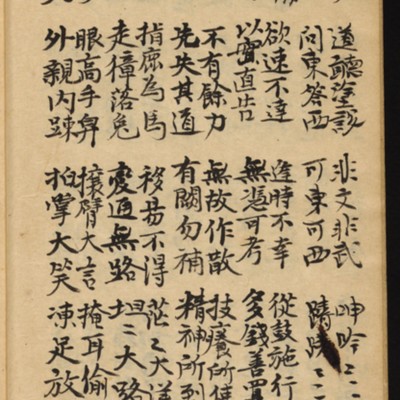 道聽塗說 非文非武 呻吟〻〻
問東答西 可東可西
欲速不達 逢時不幸 從鼓施行
以實直告 無憑可考 多錢善買
不有餘力 無故作散 技癢所使
先失其道 有闕勿補 精神所到
指鹿為馬 移易不得 茫〻大洋
走獐落兔 變通無路 坦〻大路
眼高手卑 攘臂大言 掩耳偷
外親內踈 拍掌大笑 凍足放